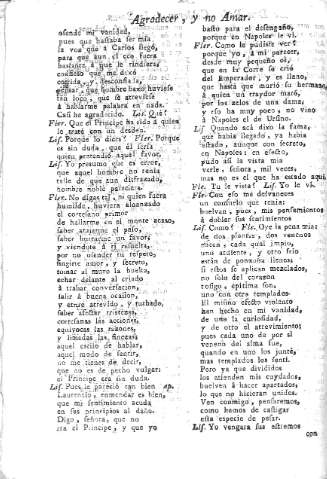 Agradecer, y no Amar.
ofende mi vanidad,
pues que bastaba ser mia
la voz que à Carlos llegó,
para que aun el eco fuera
bastante à que le rindiera,
cortido, y
que hombre baxo huviesse
tan loco, que se atreviesse
à hablarme palabra en nada.
Casi he agradecido. Lis. Què?
Flor. Que el Principe ha sido à quien
le tratè con un desden.
Lis. Porquè lo dices? Flor. Porque
es sin duda, que èl seria
quien pretendiò aquel favor.
Lis. Yo presumo que es error,
que aquel hombre no tenia
talle de que aun disfrazado,
hombre noble pareciera.
Flor. No digas tal, ni quien fuera
humilde, huviera alcanzado
el cortesano primor
de hallarme en el monte acaso,
saber atajarme el passo,
saber
y viendote à ti resuelta,
por no ofender tu respeto,
fingirse autor, y secreto,
tomar al muro la buelta,
echar delante al criado
à trabar conversacion,
salir à buena ocasion,
y entre atrevido, y turbado,
saber afectar tristezas,
cortesanas las acciones,
equivocas las razones,
y lisiadas las finezas:
aquel estilo de hablar,
aquel modo de sentir,
no me tienes de decir,
que no es de pecho vulgar:
el Principe era sin duda.
Lis. Pues le pareciò tan bien ap.
Laurencio, enmendar es bien,
que mi sentimiento acuda
en sus principios al daño.
Digo, señora, que no
era el Principe, y que yo
basto para el desengaño,
porque en Napoles le vi.
Flor. Como le pudiste vèr?
porque yo, à mi parecer,
desde muy pequeño oi,
que en la Corte se criò
del Emperador, y es llano,
que hasta que muriò su hermano,
à quien un traydor matò,
por los zelos de una dama,
y esso ha muy poco, no vino
à Napoles el de Ursino.
Lis. Quando acà dixo la fama,
que havia llegado, ya havia
estado, aunque con secreto,
en Napoles: en efecto,
pudo asi la vista mia
verle, señora, mil veces,
mas no es el que ha estado aqui.
Flor. Tu le viste? Lis. Yo le vi.
Flor. Con esso me desvaneces
un consuelo que tenia:
buelvan, pues, mis pensamientos
à doblar sus sentimientos.
Lis. Como? Flor. Oye la pena mia:
de dos plantas, dos venenos
dicen, cada qual impio,
uno ardiente, y otro frio
seràn de ponzoña llenos:
si estos se aplican mezclados,
no solo del corazon
tosigo, epitima son,
uno con otro templados.
El mismo efecto violento
han hecho en mi vanidad,
de uno la curiosidad,
y de otro el atrevimiento;
pues cada uno de por sì
veneno del alma fue,
quando en uno los juntè,
mas templados los senti.
Pero ya que divididos
los atienden mis cuydados,
buelven à hacer apartados,
lo que no hicieran unidos.
Ven conmigo, pensarèmos,
como hemos de castigar
esta especie de pesar.
Lis. Yo vengara sus estremos
con